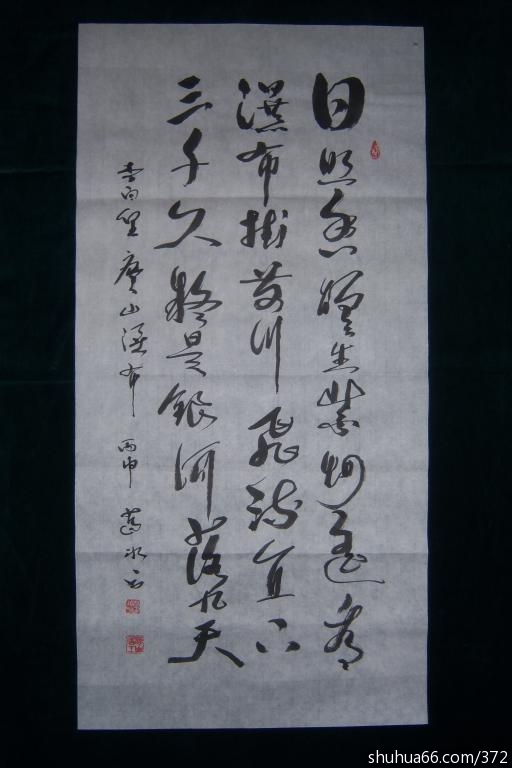 日照香爐生紫烟遥看
瀑布掛前川飛流直下
三千尺疑是銀河落九天
李白望廬山瀑布 丙申
shuhua66.com/372